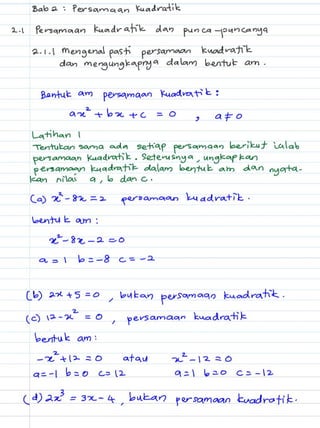 Bab 2 : Persamaan Kuadratik
2.1 Persamaan kuadratik dan punca-puncanya
2.1.1 mengenal pasti persamaan kuadratik
dan mengungkapnya dalam bentuk am.
Bentuk am persamaan kuadratik :
ax² + bx + c = 0 , a ≠ 0
Latihan 1
Tentukan sama ada setiap persamaan berikut ialah
persamaan kuadratik. Seterusnya, ungkapkan
persamaan kuadratik dalam bentuk am dan nyata-
kan nilai a, b dan c.
(a) x² - 8x = 2 persamaan kuadratik.
bentuk am :
x² - 8x - 2 = 0
a = 1 b = -8 c = -2
(b) 2x + 5 = 0 , bukan persamaan kuadratik.
(c) 12 - x² = 0 , persamaan kuadratik
bentuk am:
-x² + 12 = 0 atau x² - 12 = 0
a = -1 b = 0 c = 12 a = 1 b = 0 c = -12
(d) 2x³ = 3x - 4 , bukan persamaan kuadratik.